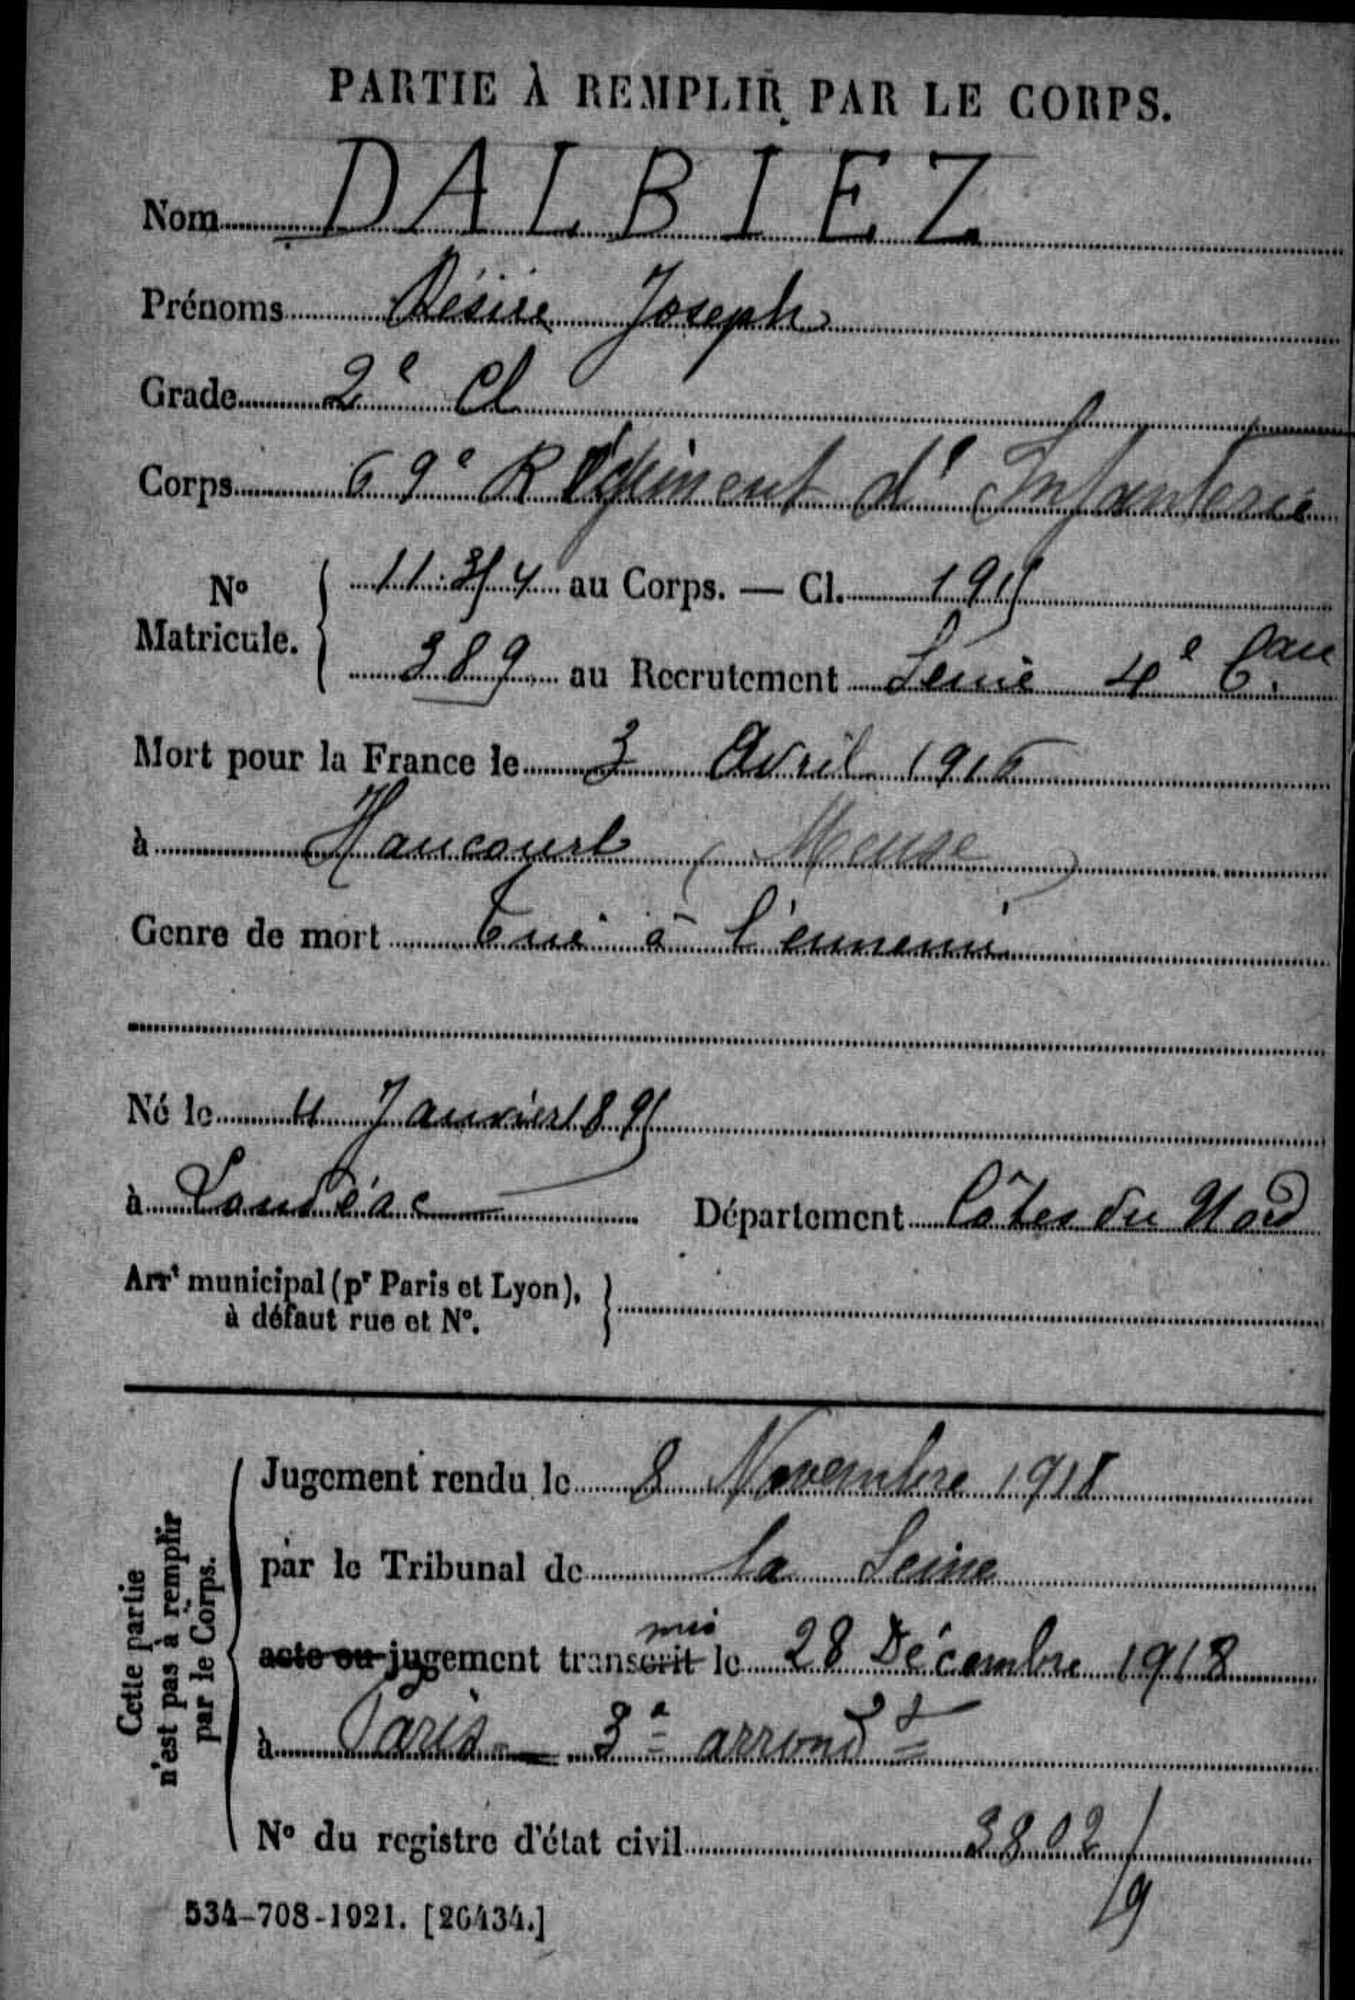 PARTIE À REMPLIR PAR LE CORPS.
Nom DALBIEZ
Prénoms Désiré Joseph
Grade 2e Cl
Corps 69e Régiment d'Infanterie
No Matricule. { 11.354 au Corps. — Cl. 1915
389 au Recrutement Seine 4e Bau
Mort pour la France le 3 Avril 1916
à Haucourt (Meuse)
Genre de mort Tué à l'ennemi
Né le 4 Janvier 1895
à Loudéac Département Côtes du Nord
Arrt municipal (pr Paris et Lyon), à défaut rue et No. }
Cette partie n'est pas à remplir par le Corps.
Jugement rendu le 8 Novembre 1918
par le Tribunal de la Seine
mis
acte ou jugement transcrit le 28 Décembre 1918
à Paris - 3e arrondt
No du registre d'état civil 3802/
/9
534-708-1921. [26434.]